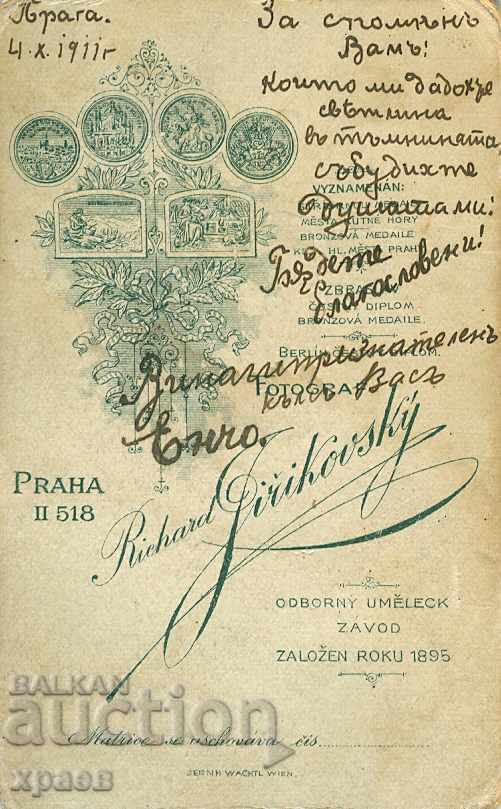 Прага.
4.X.1911г
За споменъ
Вамъ!
които ми дадохте
свѣтлина
въ тъмнината,
събудихте
Душата ми!
Бѫдете
благословени!
Винаги признателенъ
към Васъ
Енчо.
VYZNAMENÁN:
MĚSTA KUTNÉ HORY
BRONZOVÁ MEDAILE
HL. MĚST. PRAHY
DIPLOM.
BRONZOVÁ MEDAILE.
BERLÍN
FOTOGRAF
PRAHA
II 518
Richard Jiřikovský
ODBORNÝ UMĚLECK
ZÁVOD
ZALOŽEN ROKU 1895
BALKAN
auction
храов
Matrice se uschovává čís.
BERNH WACHTL WIEN.